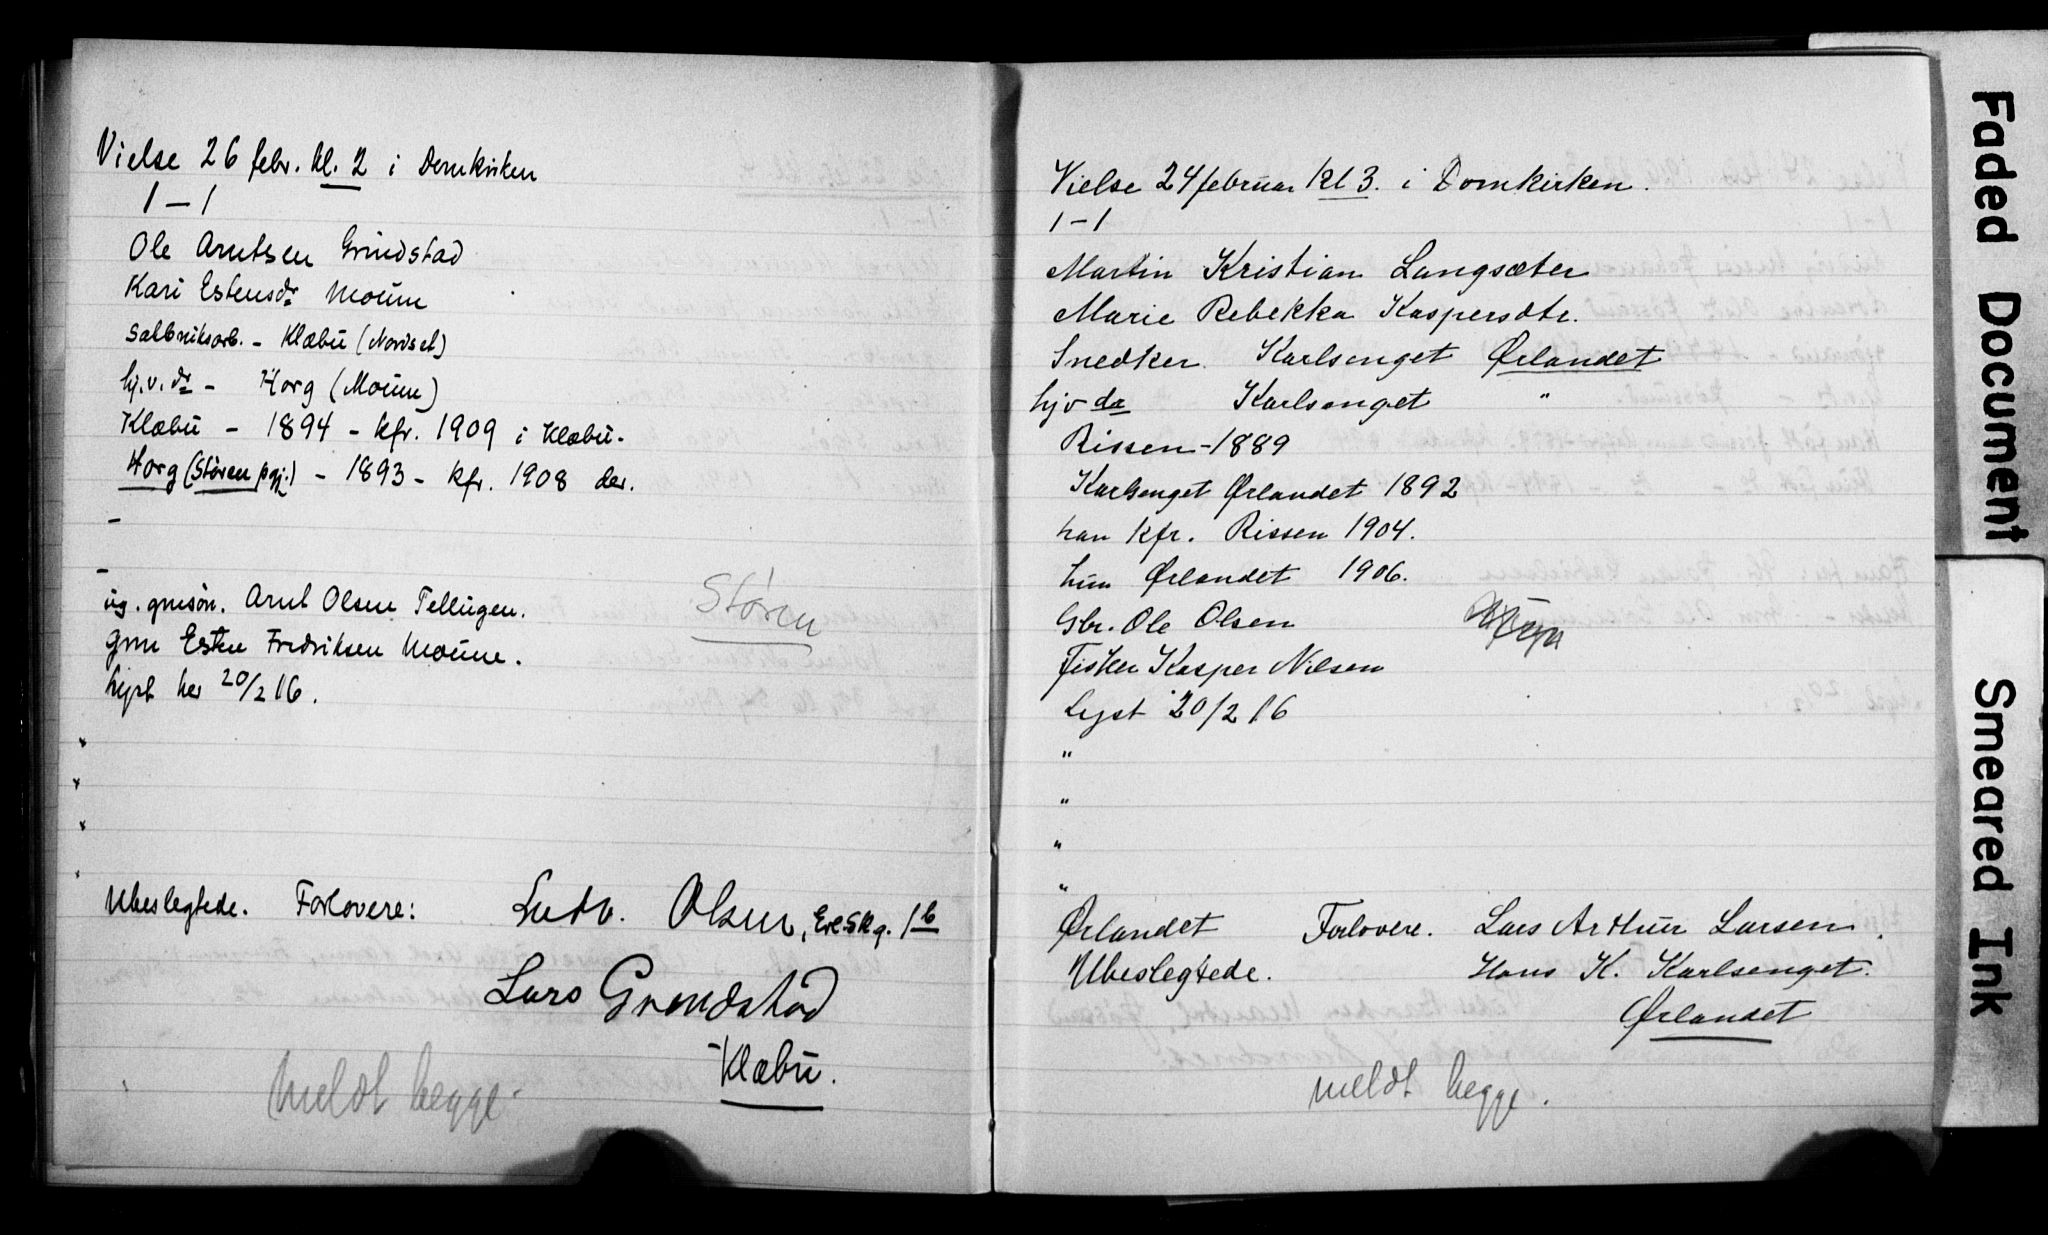 Vielse 26 febr. kl. 2 i Domkirken
1 – 1
Ole Arntsen Grindstad
Kari Estensdr Moum
Klæbu (Nordset)
hj. v. dr – Horg (Moum)
Klæbu – 1894 – kfr. 1909 i Klæbu.
Horg (Støren pgj.) – 1893 – kfr. 1908 der.
–
–
ug. gmsøn. Arnt Olsen Tellugen.
Støren
gm Esten Fredriksen Moume.
Lyst her 20/2 16.
Ubeslegtede. Forlovere: Ludv. Olsen, 1b
Lars Grendstad
Klæbu.
meldt begge.
Vielse 24 februar kl 3. i Domkirken.
1 – 1
Martin Kristian Langsæter
Marie Rebekka Kaspersdtr.
Snedker Karlsenget Ørlandet
hjv dr Karlsenget "
Rissen – 1889
Karlsenget Ørlandet 1892
han kfr. Rissen 1904.
hun Ørlandet 1906.
Gbr. Ole Olsen
Fisker Kasper Nilsen
Lyst 20/2 16
"
"
"
"
Ørlandet Forlovere. Lars Arthur Larsen.
Ubeslegtede. Hans K. Karlsenget.
Ørlandet
meldt begge.
Faded Document
Smeared Ink